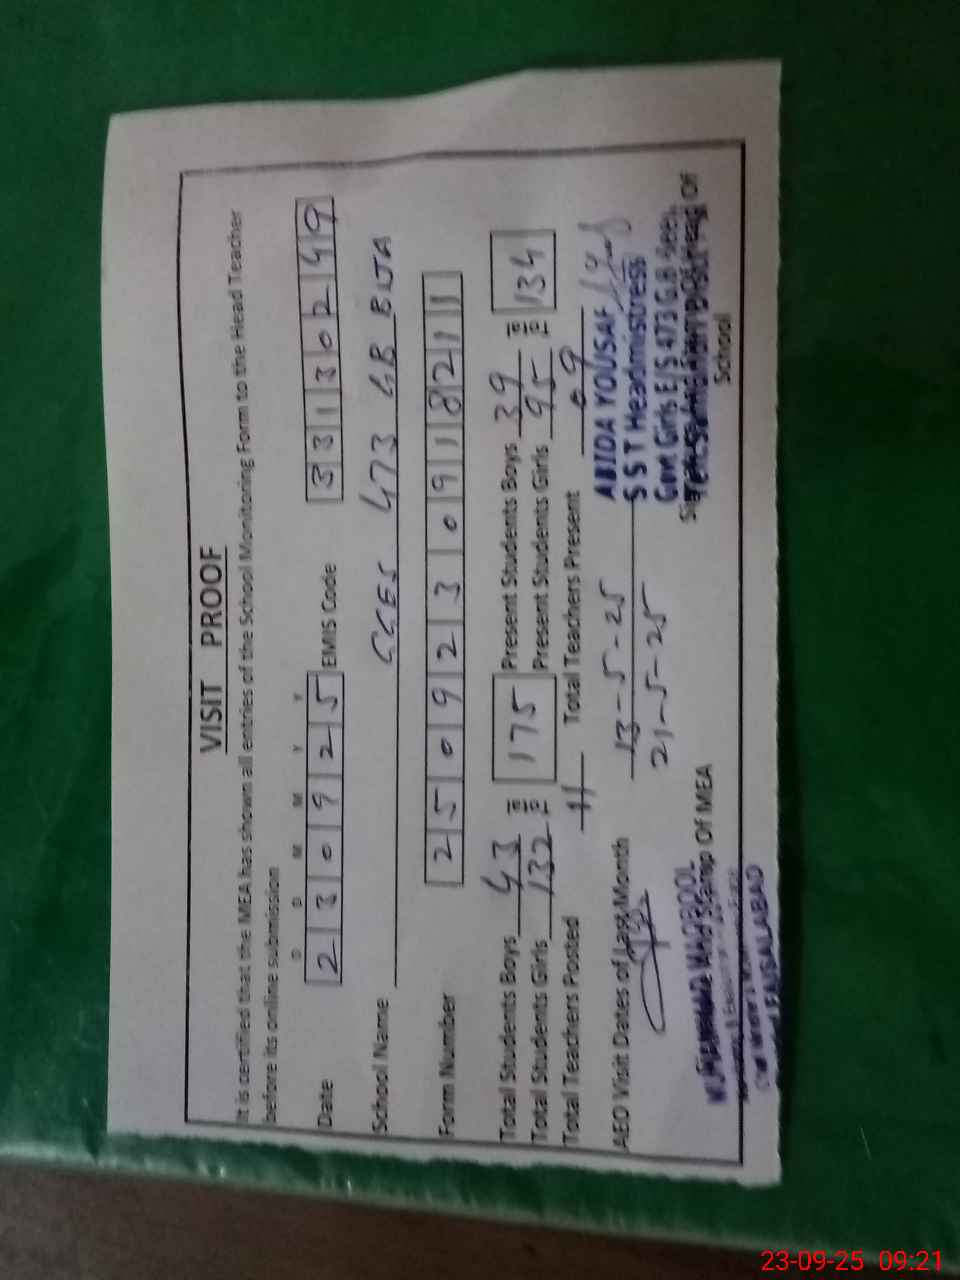 VISIT PROOF
It is certified that the MEA has shown all entries of the School Monitoring Form to the Head Teacher
before its online submission
D D M M Y Y
Date 2 3 0 9 2 5 EMIS Code 3 3 1 3 0 2 4 9
School Name GGES 473 GB BIJA
Form Number 2 5 0 9 2 3 0 9 1 8 2 1 1
Total Students Boys 43 = 175 Present Students Boys 39 = 134
Total Students Girls 132 = Present Students Girls 95 =
Total Teachers Posted 11 Total Teachers Present 09
AEO Visit Dates of Last Month 13-5-25
21-5-25
ABIDA YOUSAF
S S T Headmistress
Govt Girls E/S 473 G.B
Of
School
Stamp Of MEA
FAISALABAD
23-09-25 09:21